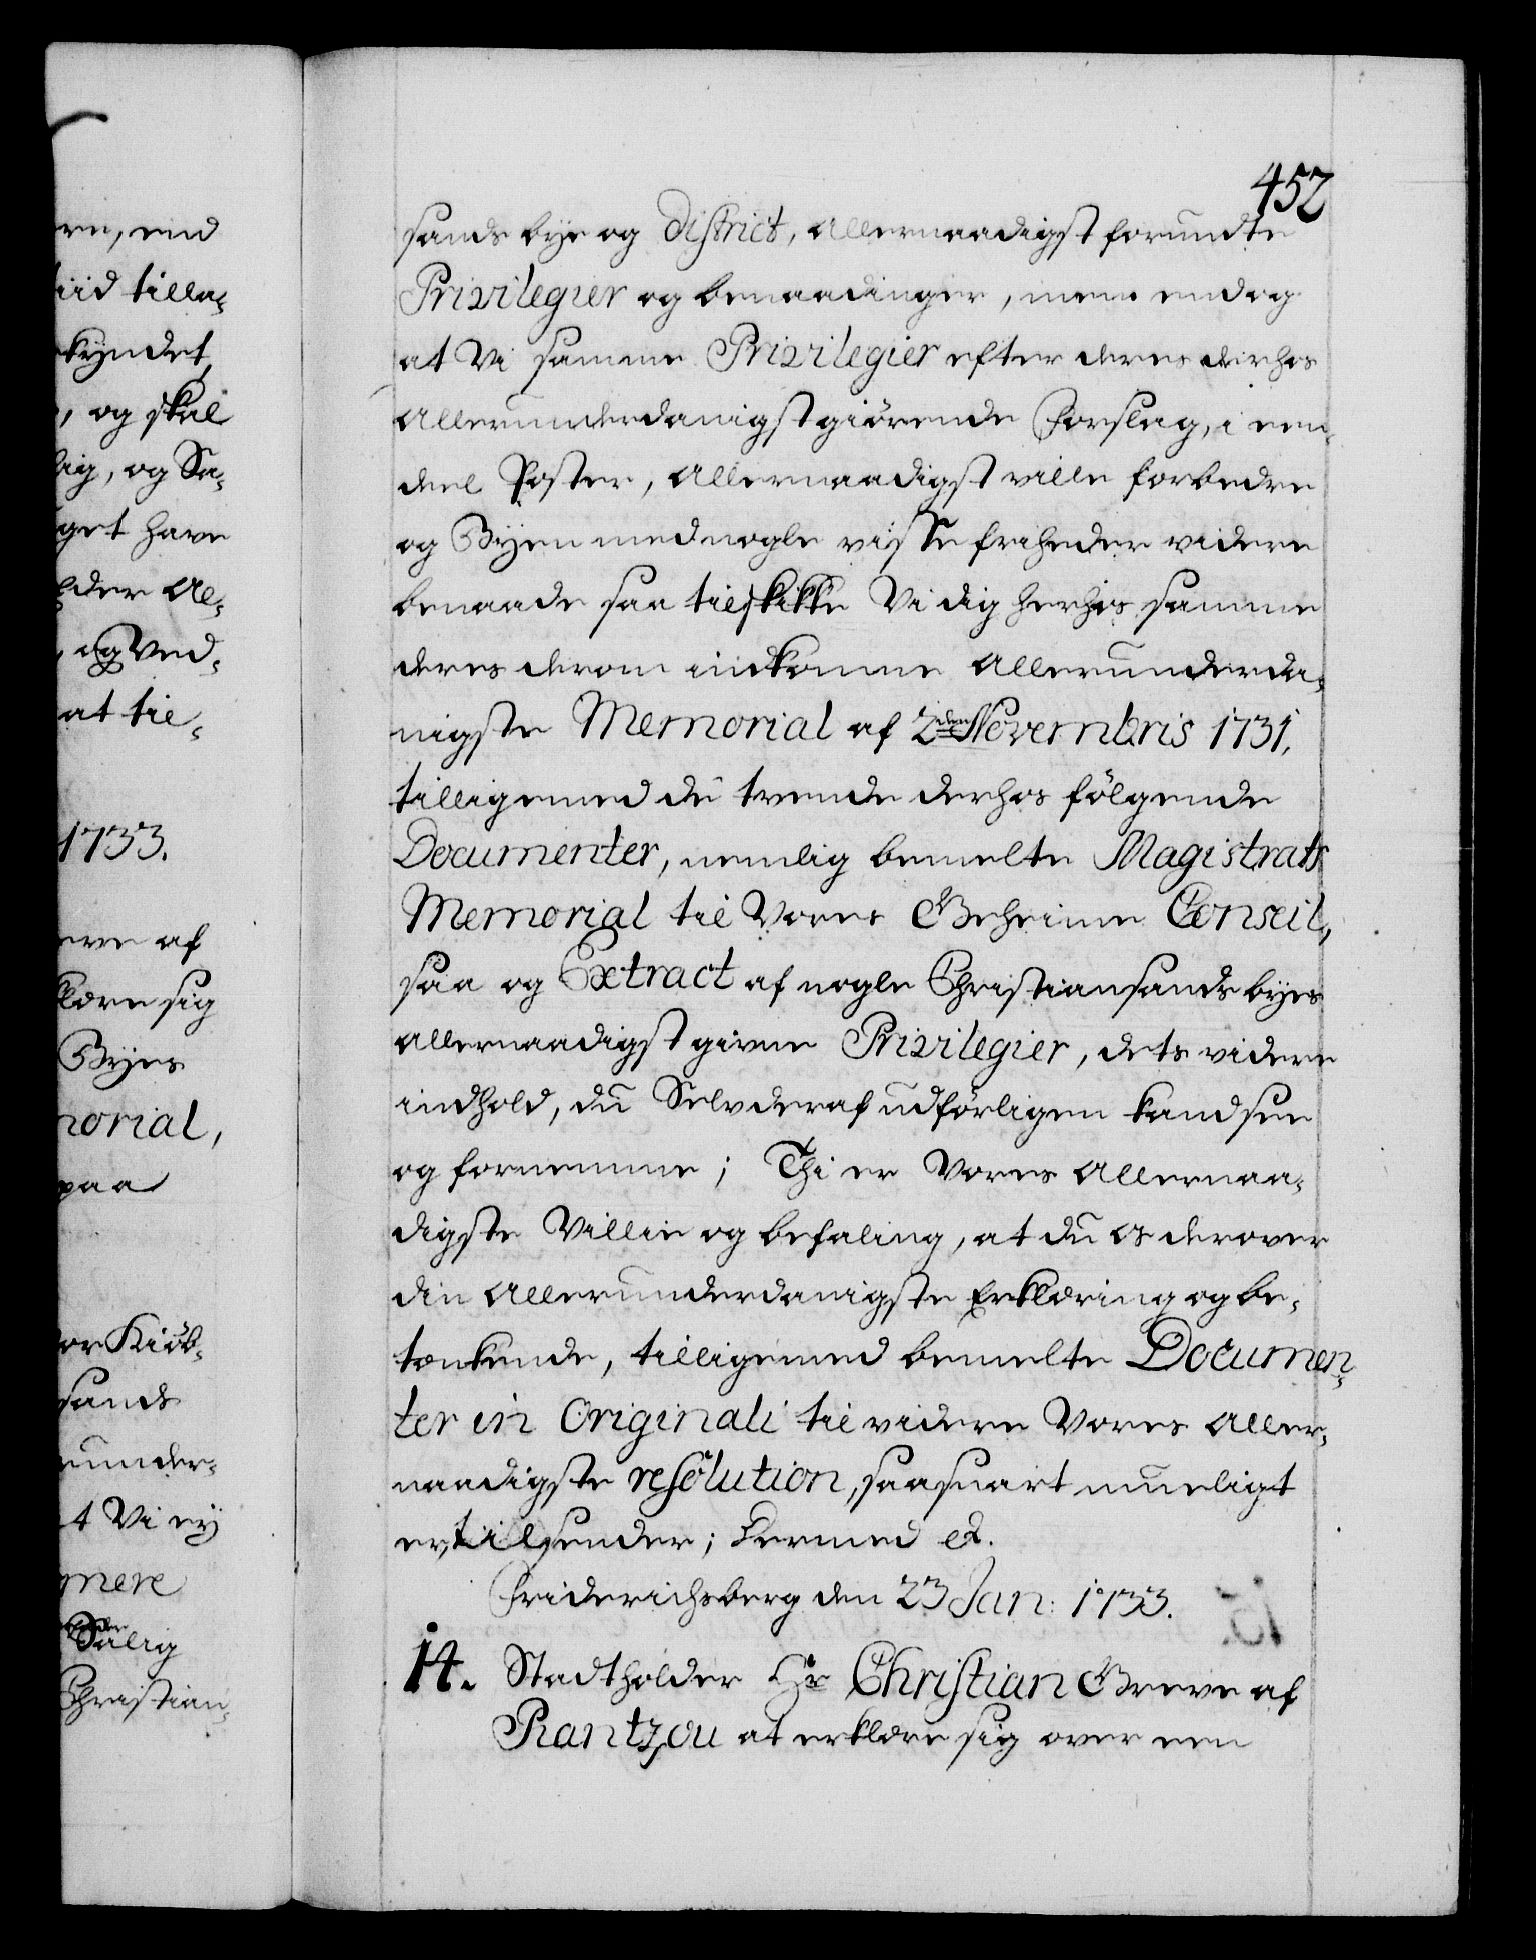 ere, end
tiid tilla-
kyndet,
, og skal
lig, og Sa-
get have
eder Al-
, og Ved-
at til-
1733.
eve af
klære sig
Byes
morial,
paa
or Kiøb-
sands
eunder-
t Vi ey
mere
Salig
Christian-
452
sands bye og District, allernaadigst forundte
Privilegier og benaadinger, men endog
at Vi samme Privilegier efter deres derhos
allerunderdanigst giørende Forslag, i een-
deel Poster, allernaadigst ville forbedre
og Byen med nogle visse friheder videre
benaade saa tilskikke Vi dig herhos samme
deres derom indkomne allerunderda-
nigste Memorial af 2den Novembris 1731,
tilligemed de trende derhos følgende
Documenter, nemlig bemelte Magistrats
Memorial til Vores Geheime Conseil,
saa og Extract af nogle Christiansands byes
allernaadigst givne Privilegier, dets videre
indhold, du Selv deraf udførligen kand see
og fornemme; Thi er Vores allernaa-
digste Villie og befaling, at du os derover
din allerunderdanigste Erklæring og be-
tænkende, tilligemed bemelte Documen-
ter in Originali til videre Vores aller-
naadigste resolution, saasnart mueligt
er, tilsender; Dermed etc.
Friderichsberg den 23 Jan: 1733.
14. Stadtholder Hr Christian Greve af
Rantzou at erklære sig over een